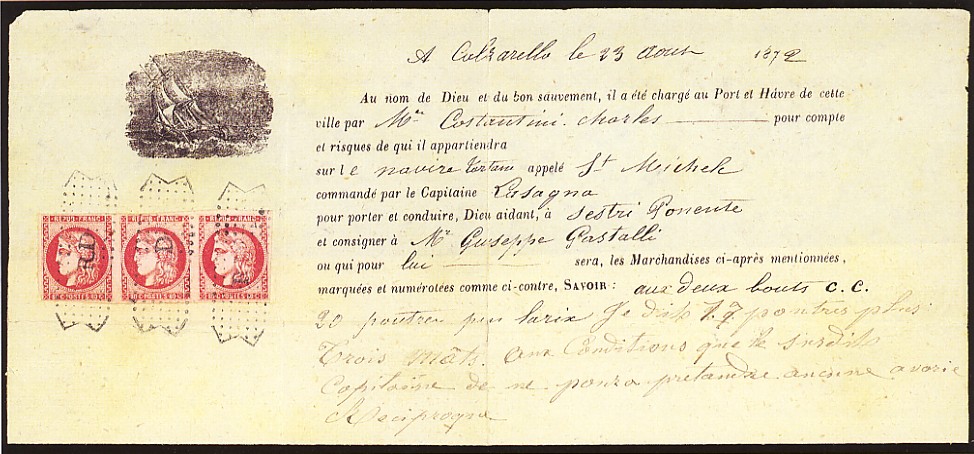 A Colzarello le 23 Aoust 1872
Au nom de Dieu et du bon sauvement, il a été chargé au Port et Hâvre de cette
ville par Mr Costantini Charles pour compte
et risques de qui il appartiendra
sur le navire tartane appelé St Michel
commandé par le Capitaine Lasagna
pour porter et conduire, Dieu aidant, à Sestri Ponente
et consigner à Mr Guseppe Gastalli
ou qui pour lui sera, les Marchandises ci-après mentionnées,
marquées et numérotées comme ci-contre, SAVOIR : aux deux bouts C. C.
20 poutres pin larix Je dis 17 poutres plus
Trois mâts. aux Conditions que le susdit
Capitaine de ne pourra pretandre aucune avarie
Reciproque
REPUB. FRANC. REPUB. FRANC. REPUB. FRANC.
80 C. POSTES 80 C. 80 C. POSTES 80 C. 80 C. POSTES 80 C.